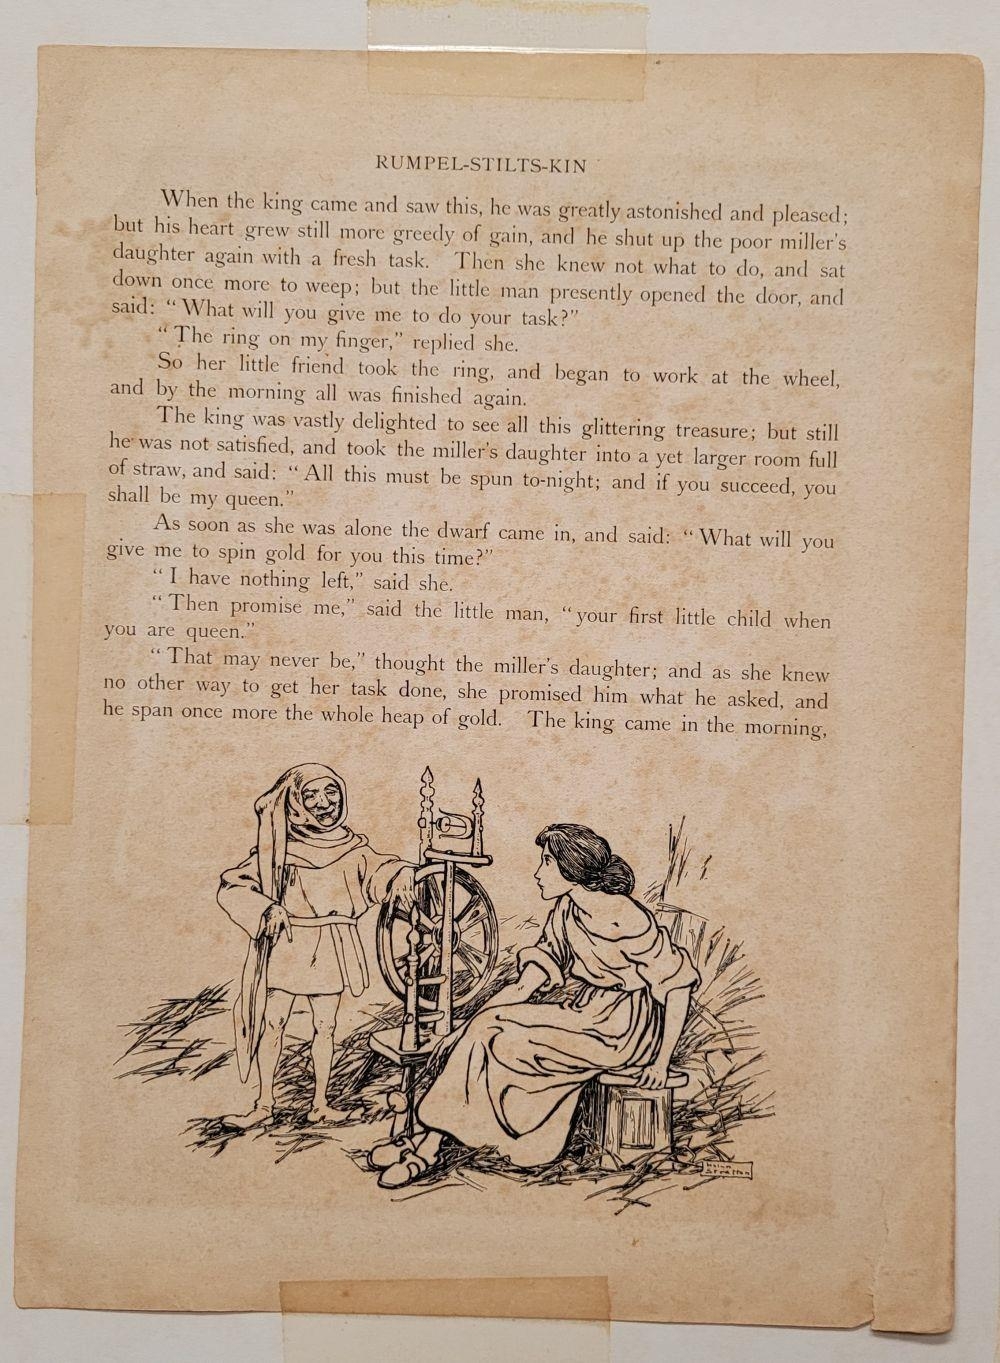 RUMPEL-STILTS-KIN
When the king came and saw this, he was greatly astonished and pleased;
but his heart grew still more greedy of gain, and he shut up the poor miller's
daughter again with a fresh task. Then she knew not what to do, and sat
down once more to weep; but the little man presently opened the door, and
said: “What will you give me to do your task?”
“The ring on my finger,” replied she.
So her little friend took the ring, and began to work at the wheel,
and by the morning all was finished again.
The king was vastly delighted to see all this glittering treasure; but still
he was not satisfied, and took the miller's daughter into a yet larger room full
of straw, and said: “All this must be spun to-night; and if you succeed, you
shall be my queen.”
As soon as she was alone the dwarf came in, and said: “What will you
give me to spin gold for you this time?”
“I have nothing left,” said she.
“Then promise me,” said the little man, “your first little child when
you are queen.”
“That may never be,” thought the miller's daughter; and as she knew
no other way to get her task done, she promised him what he asked, and
he span once more the whole heap of gold. The king came in the morning,
Helen
Stratton